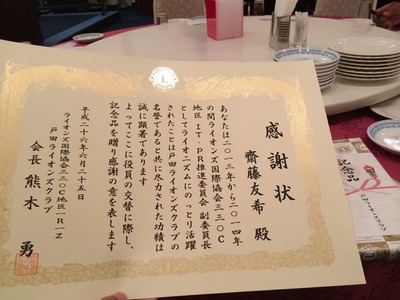 感謝状
齋藤友希 殿
あなたは二〇一三年から二〇一四年
の間ライオンズ国際協会三三〇C
地区IT・PR推進委員会 副委員長
としてライオニズムにのっとり活躍
されたことは戸田ライオンズクラブの
名誉であると共に尽力された功績は
誠に顕著であります
よってここに役員の交替に際し、
記念品を贈り感謝の意を表します
平成二十六年六月二十五日
ライオンズ国際協会三三〇C地区一R一Z
戸田ライオンズクラブ
会長 熊木 勇
L
記念品
戸田ライオンズクラブ